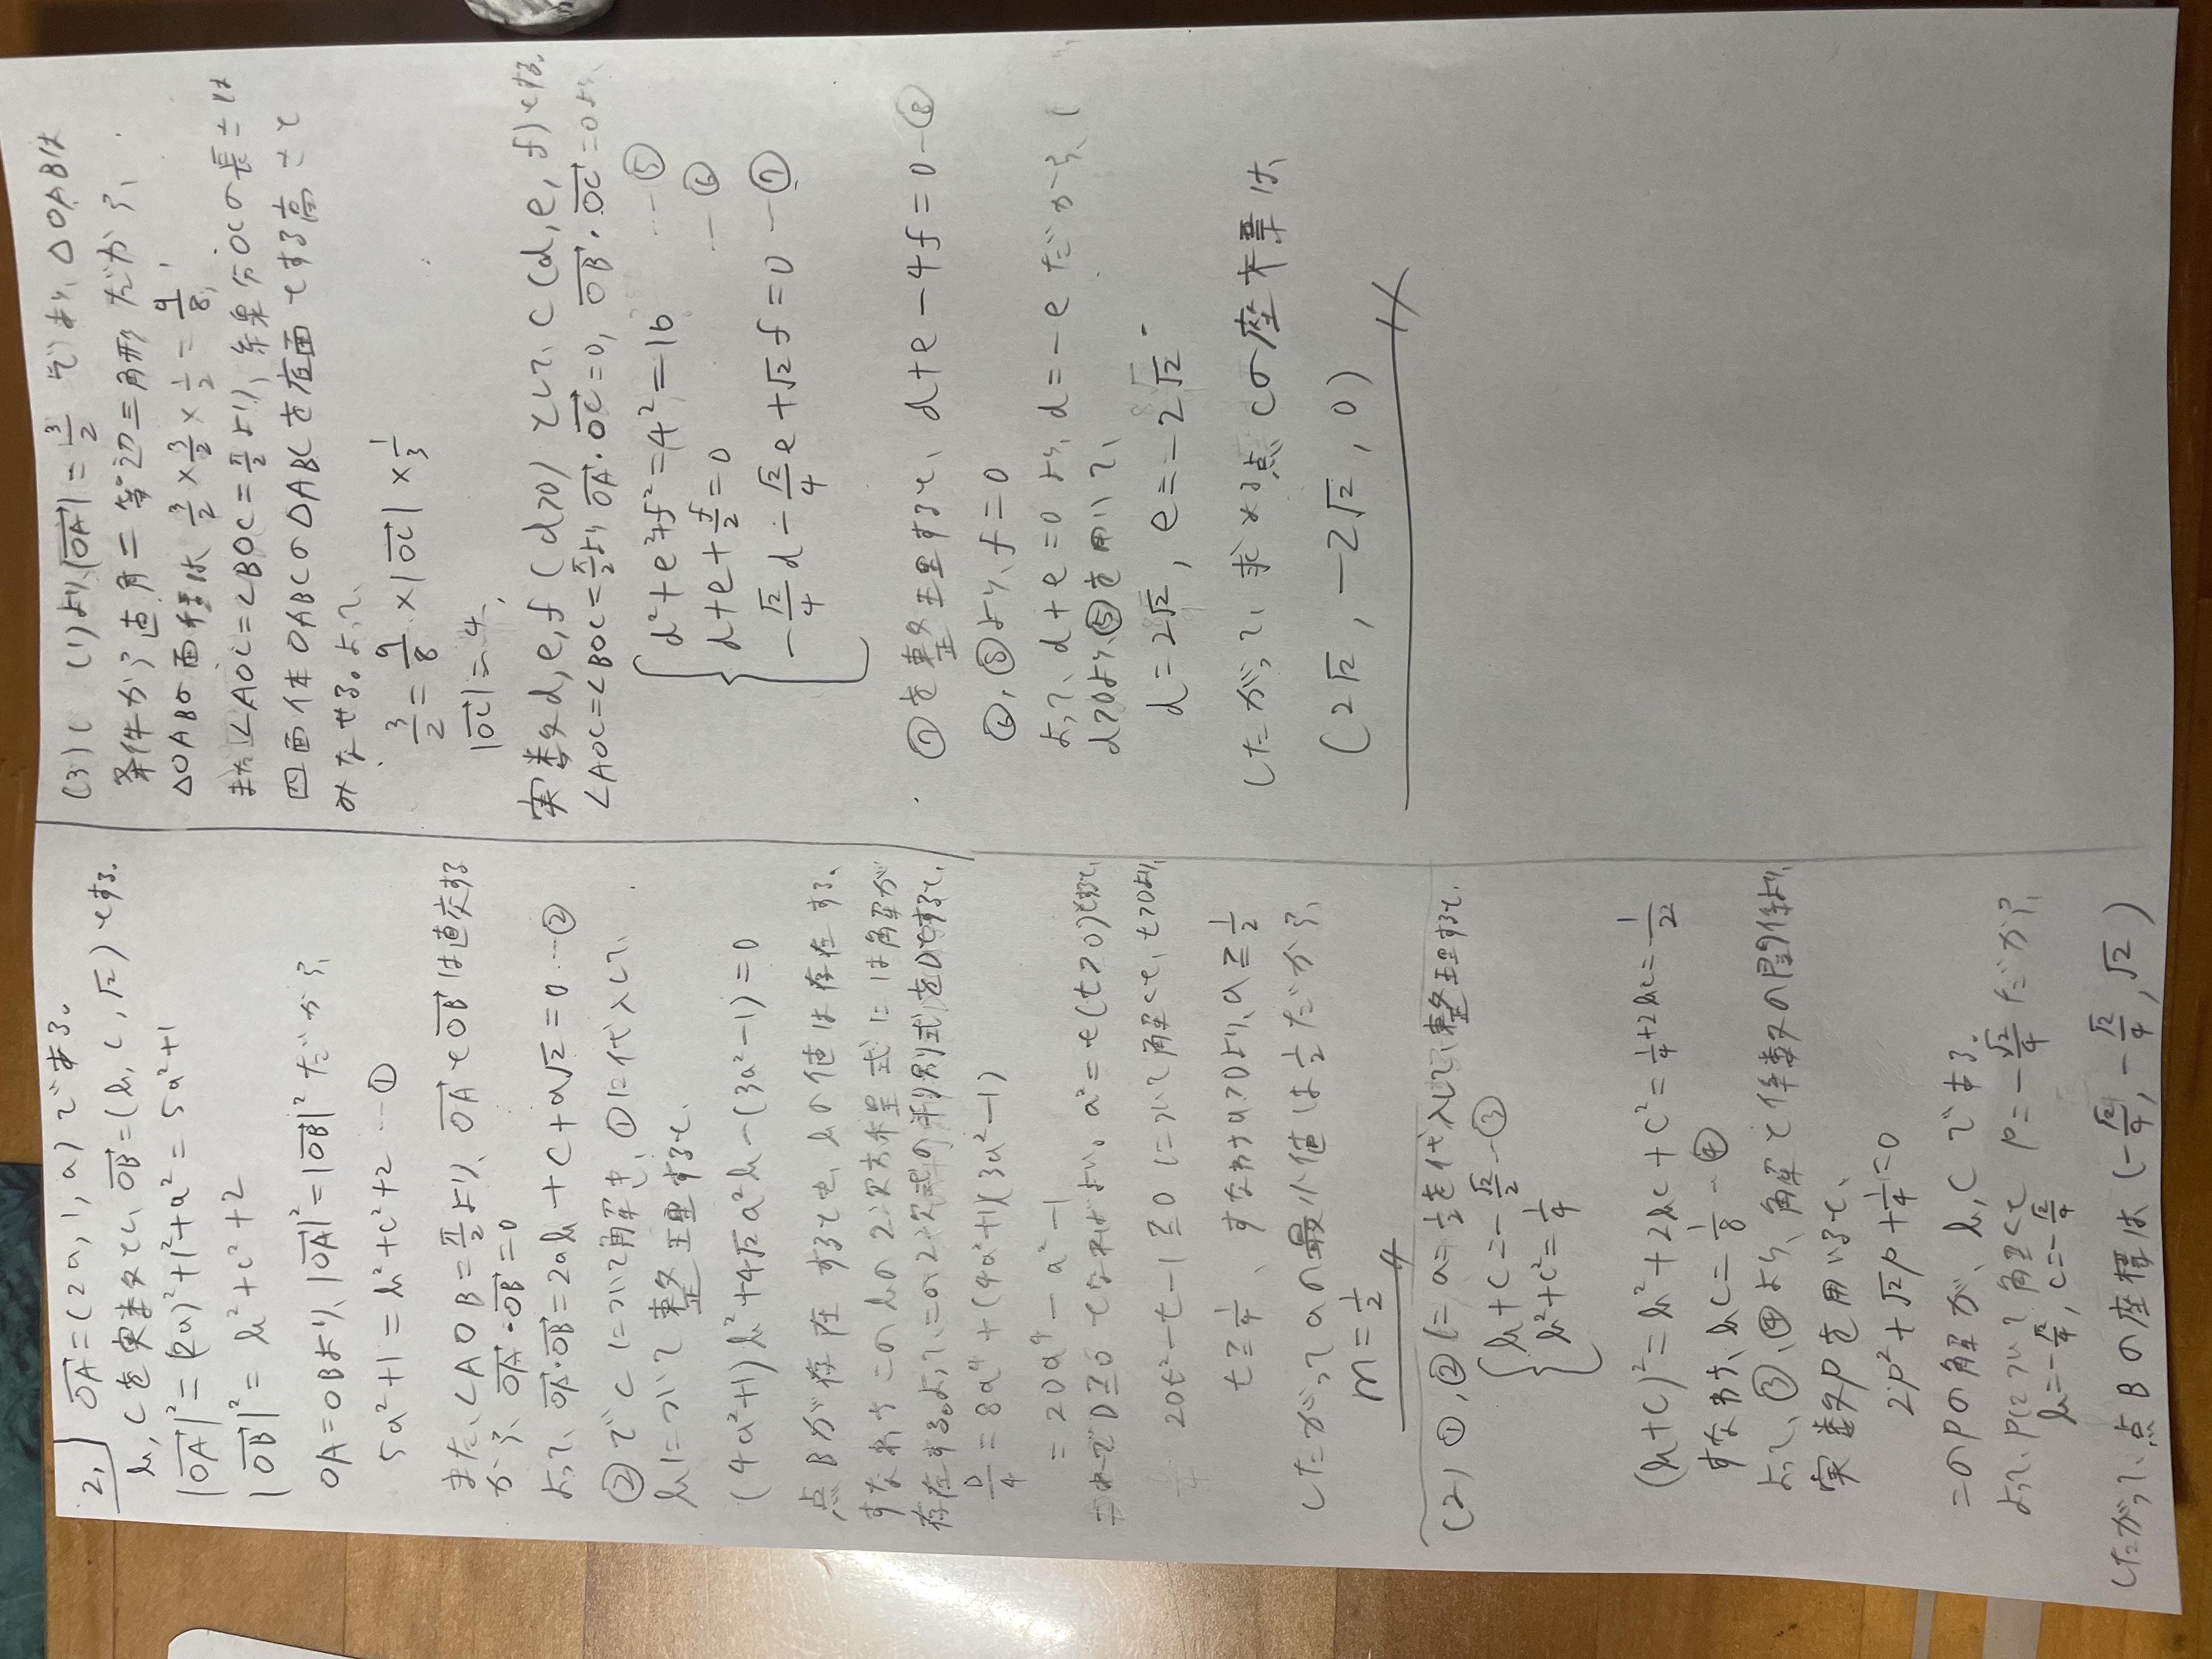 2, OA=(2a, 1, a)である。
b, cを実数とし、OB=(b, c, √2)とする。
|OA|²=(2a)²+1²+a²=5a²+1
|OB|²=b²+c²+2
OA=OBより、|OA|²=|OB|²だから、
5a²+1=b²+c²+2 …①
また、∠AOB=π/2より、OAとOBは直交する
から、OA・OB=0
よって、OA・OB=2ab+c+a√2=0 …②
②でcについて解き、①に代入して、
bについて整理すると、
(4a²+1)b²+4√2a²b-(3a²-1)=0
点Bが存在するとき、bの値は存在する。
すなわちこのbの2次方程式には解が
存在する。よって、この2次式の判別式をDとすると、
D/4=8a⁴+(4a²+1)(3a²-1)
=20a⁴-a²-1
D≧0となればよい。a²=t(t>0)とすると、
20t²-t-1≧0について解くと、t>0より、
t≧1/4、すなわちa>0より、a≧1/2
したがってaの最小値は1/2だから、
m=1/2
(2) ①,②にa=1/2を代入して整理すると、
{b+c=-√2/2 …③
b²+c²=1/4
(b+c)²=b²+2bc+c²=1/4+2bc=1/2
すなわち、bc=1/8 …④
よって、③,④より、解と係数の関係より、
実数pを用いると、
2p²+√2p+1/4=0
このpの解が、b, cである。
よって、pについて解くとp=-√2/4だから、
b=-√2/4, c=-√2/4
したがって、点Bの座標は(-√2/4, -√2/4, √2)
(3) (1)より、|OA|=3/2であり、△OABは
条件から直角二等辺三角形だから、
△OABの面積は 3/2×3/2×1/2=9/8,
また∠AOC=∠BOC=π/2より、線分OCの長さは
四面体OABCの△ABCを底面とする高さと
みなせる。よって、
3/2=9/8×|OC|×1/3
|OC|=4,
実数d, e, f(d>0)として、C(d, e, f)とする。
∠AOC=∠BOC=π/2よりOA・OC=0, OB・OC=0より、
{d²+e²+f²=4²=16 …⑤
d+e+f/2=0 …⑥
-√2/4d-√2/4e+√2f=0 …⑦
⑦を整理すると、d+e-4f=0 …⑧
⑥,⑧より、f=0
よって、d+e=0より、d=-eだから、
d>0より、⑤を用いて、
d=2√2, e=-2√2.
したがって、求める点Cの座標は、
(2√2, -2√2, 0)